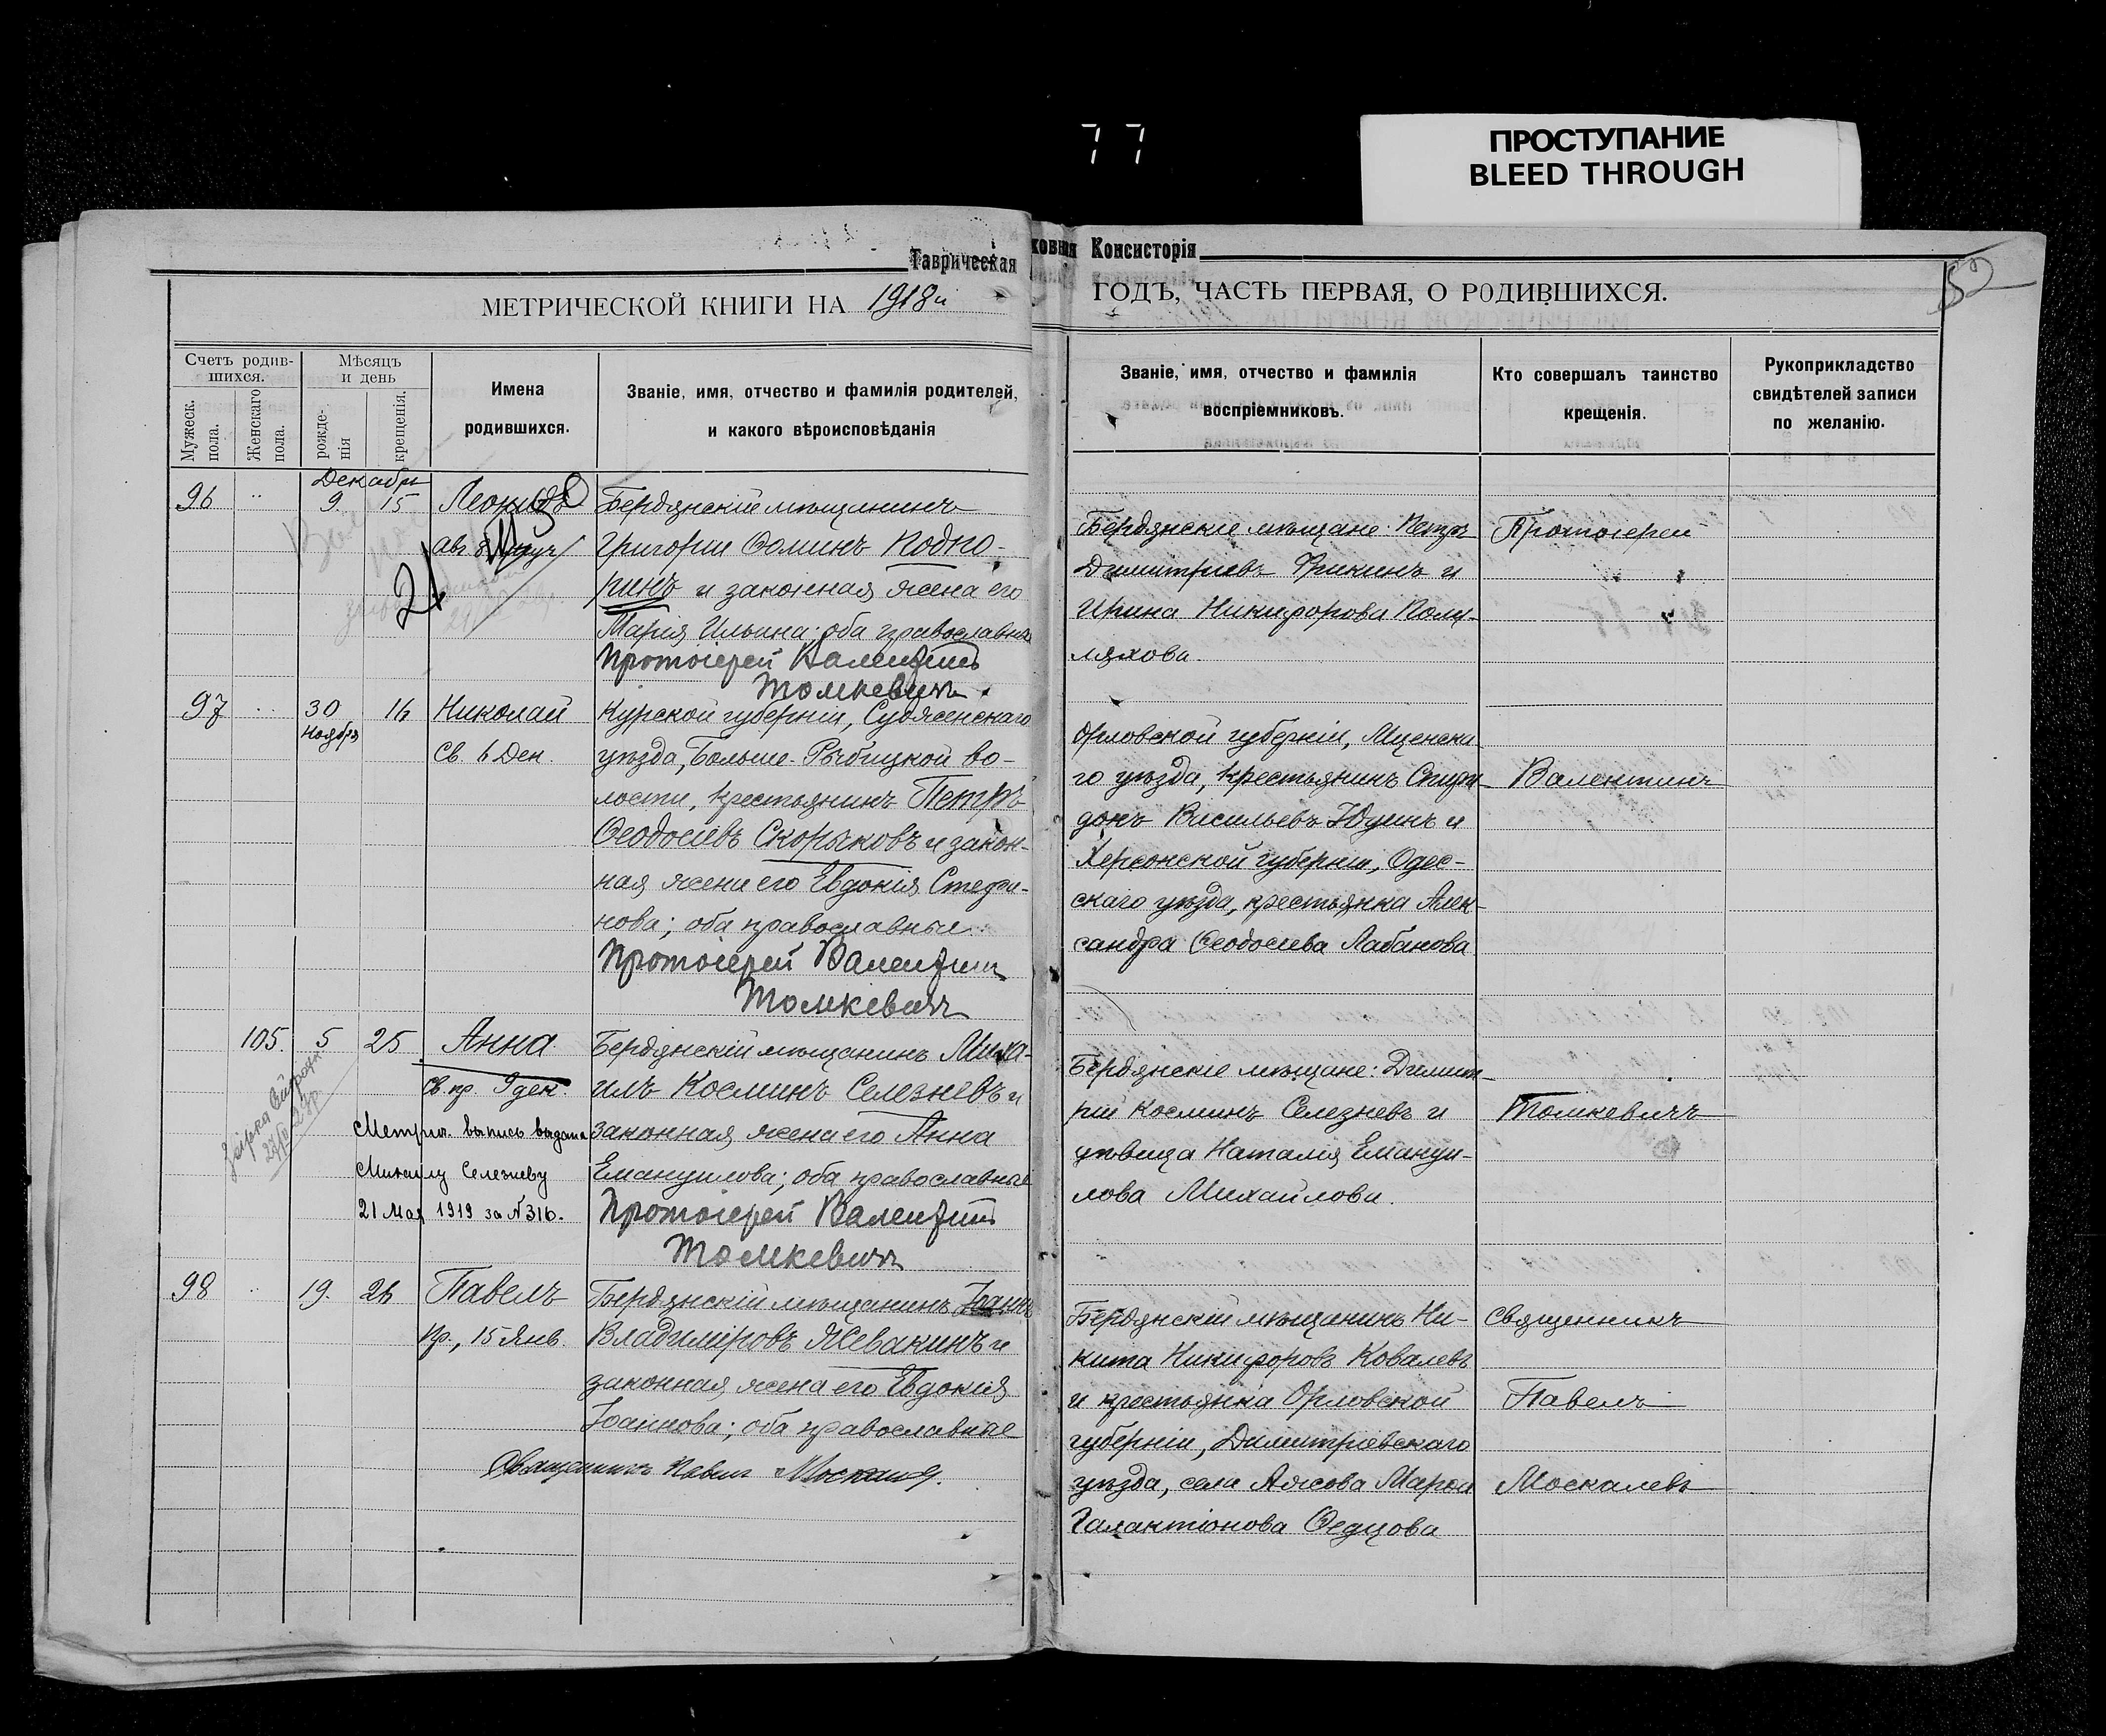 77
ПРОСТУПАНИЕ
BLEED THROUGH
Таврическая
ковная Консисторія
52
МЕТРИЧЕСКОЙ КНИГИ НА 1918й
ГОДЪ, ЧАСТЬ ПЕРВАЯ, О РОДИВШИХСЯ.
Счетъ родив-
шихся.
Мужеск.
пола.
Женскаго
пола.
Мѣсяцъ
и день
рожде-
нія
крещенія.
Имена
родившихся.
Званіе, имя, отчество и фамилія родителей,
и какого вѣроисповѣданія
Званіе, имя, отчество и фамилія
воспріемниковъ.
Кто совершалъ таинство
крещенія.
Рукоприкладство
свидѣтелей записи
по желанію.
Декабрь
96 9. 15 Леонидъ Бердянскій мѣщанинъ
Григорій Ѳоминъ Подко-
и законная жена его
Марія Ильина; оба православные
Протоіерей Валентинъ
Томкевичъ.
Бердянскіе мѣщане: Петръ
Димитріевъ и
Ирина Никифорова
ляхова.
Протоіерей
97 30 16 Николай Курской губерніи, Судженскаго
Ноября
св. 6 Дек. уѣзда, Больше-Рыбицкой во-
лости, крестьянинъ Петръ
Ѳеодосіевъ Скорыковъ и закон-
ная жена его Евдокія Стефа-
нова; оба православные.
Протоіерей Валентинъ
Томкевичъ
Орловской губерніи, Мценска-
го уѣзда, крестьянинъ Спири-
донъ Васильевъ и
Херсонской губерніи, Одес-
скаго уѣзда, крестьянка Алек-
сандра Ѳеодосіева Лабанова
Валентинъ
105. 5 25 Анна Бердянскій мѣщанинъ Миха-
Св. пр. 9 дек. илъ Косминъ Селезневъ и
Метрич. выпись выдана законная жена его Анна
Михаилу Селезневу Емануилова; оба православные
21 Мая 1919 за №316. Протоіерей Валентинъ
Томкевичъ
Бердянскіе мѣщане: Димит-
рій Косминъ Селезневъ и
дѣвица Наталія Емануи-
лова Михайлова.
Томкевичъ
98 19. 26 Павелъ Бердянскій мѣщанинъ Іоаннъ
пр., 15 Янв. Владиміровъ Жевакинъ и
законная жена его Евдокія
Іоаннова; оба православные
Священникъ Павелъ
Бердянскій мѣщанинъ Ни-
кита Никифоровъ Ковалевъ
и крестьянка Орловской
губерніи, Димитріевскаго
уѣзда, села
Галактіонова
Священникъ
Павелъ
Москалевъ